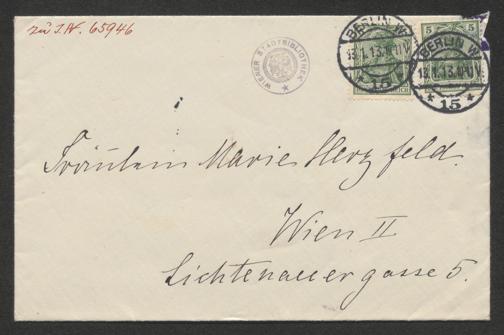 zu I.N. 65946
WIENER STADTBIBLIOTHEK
5 5
BERLIN W.
13.1.13.
15
BERLIN W.
13.1.13.
* 15 *
Fräulein Marie Herzfeld.
Wien II
Lichtenauergasse 5.